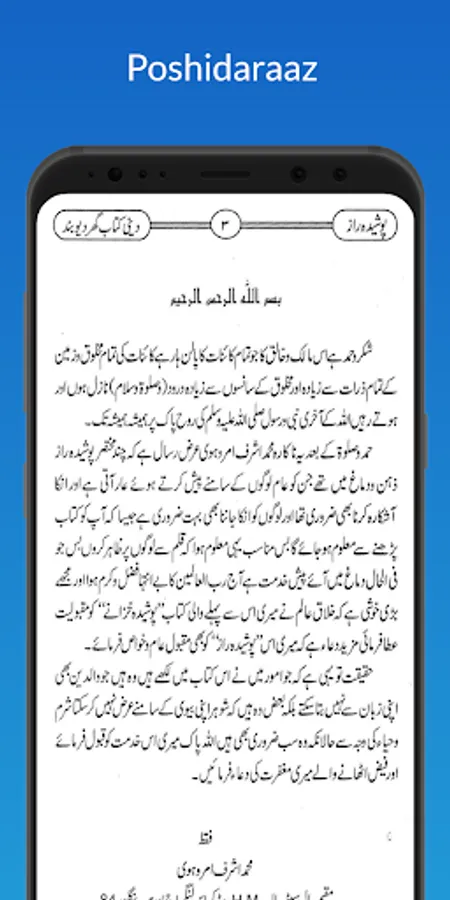 Poshidaraaz
پوشیدہ راز
۳
دینی کتاب گھر دیوبند
بسم اللہ الرحمن الرحیم
شکر و حمد ہے اس مالک و خالق کا جو تمام کائنات کا پالن ہار ہے کائنات کی تمام مخلوق و زمین
کے تمام ذرات سے زیادہ اور مخلوق کے سانسوں سے زیادہ درود (وصلوۃ وسلام) نازل ہوں اور
ہوتے رہیں اللہ کے آخری نبی و رسول صلی اللہ علیہ وسلم کی روح پاک پر ہمیشہ ہمیشہ تک۔
حمد وصلوۃ کے بعد یہ ناکارہ محمد اشرف امروہوی عرض رساں ہے کہ چند مختصر پوشیدہ راز
ذہن و دماغ میں تھے جن کو عام لوگوں کے سامنے پیش کرتے ہوئے عار آتی ہے اور انکا
آشکارہ کرنا بھی ضروری تھا اور لوگوں کو انکا جاننا بھی بہت ضروری ہے جیسا کہ آپ کو کتاب
پڑھنے سے معلوم ہو جائے گا بس مناسب یہی معلوم ہوا کہ قلم سے لوگوں پر ظاہر کروں بس جو
فی الحال دماغ میں آئے پیش خدمت ہے آج رب العالمین کا بے انتہا فضل و کرم ہوا اور مجھے
بڑی خوشی ہے کہ خلاق عالم نے میری اس سے پہلے والی کتاب "پوشیدہ خزانے" کو مقبولیت
عطا فرمائی مزید دعا ہے کہ میری اس "پوشیدہ راز" کو بھی مقبول عام و خاص فرمائے۔
حقیقت تو یہی ہے کہ جو امور میں نے اس کتاب میں لکھے ہیں وہ ہیں جو والدین بھی
اپنی زبان سے نہیں بتا سکتے بلکہ بعض وہ ہیں کہ شوہر اپنی بیوی کے سامنے عرض نہیں کر سکتا شرم
و حیاء کی وجہ سے حالانکہ وہ سب ضروری بھی ہیں اللہ پاک میری اس خدمت کو قبول فرمائے
اور فیض اٹھانے والے میری مغفرت کی دعاء فرمائیں۔
فقط
محمد اشرف امروہوی